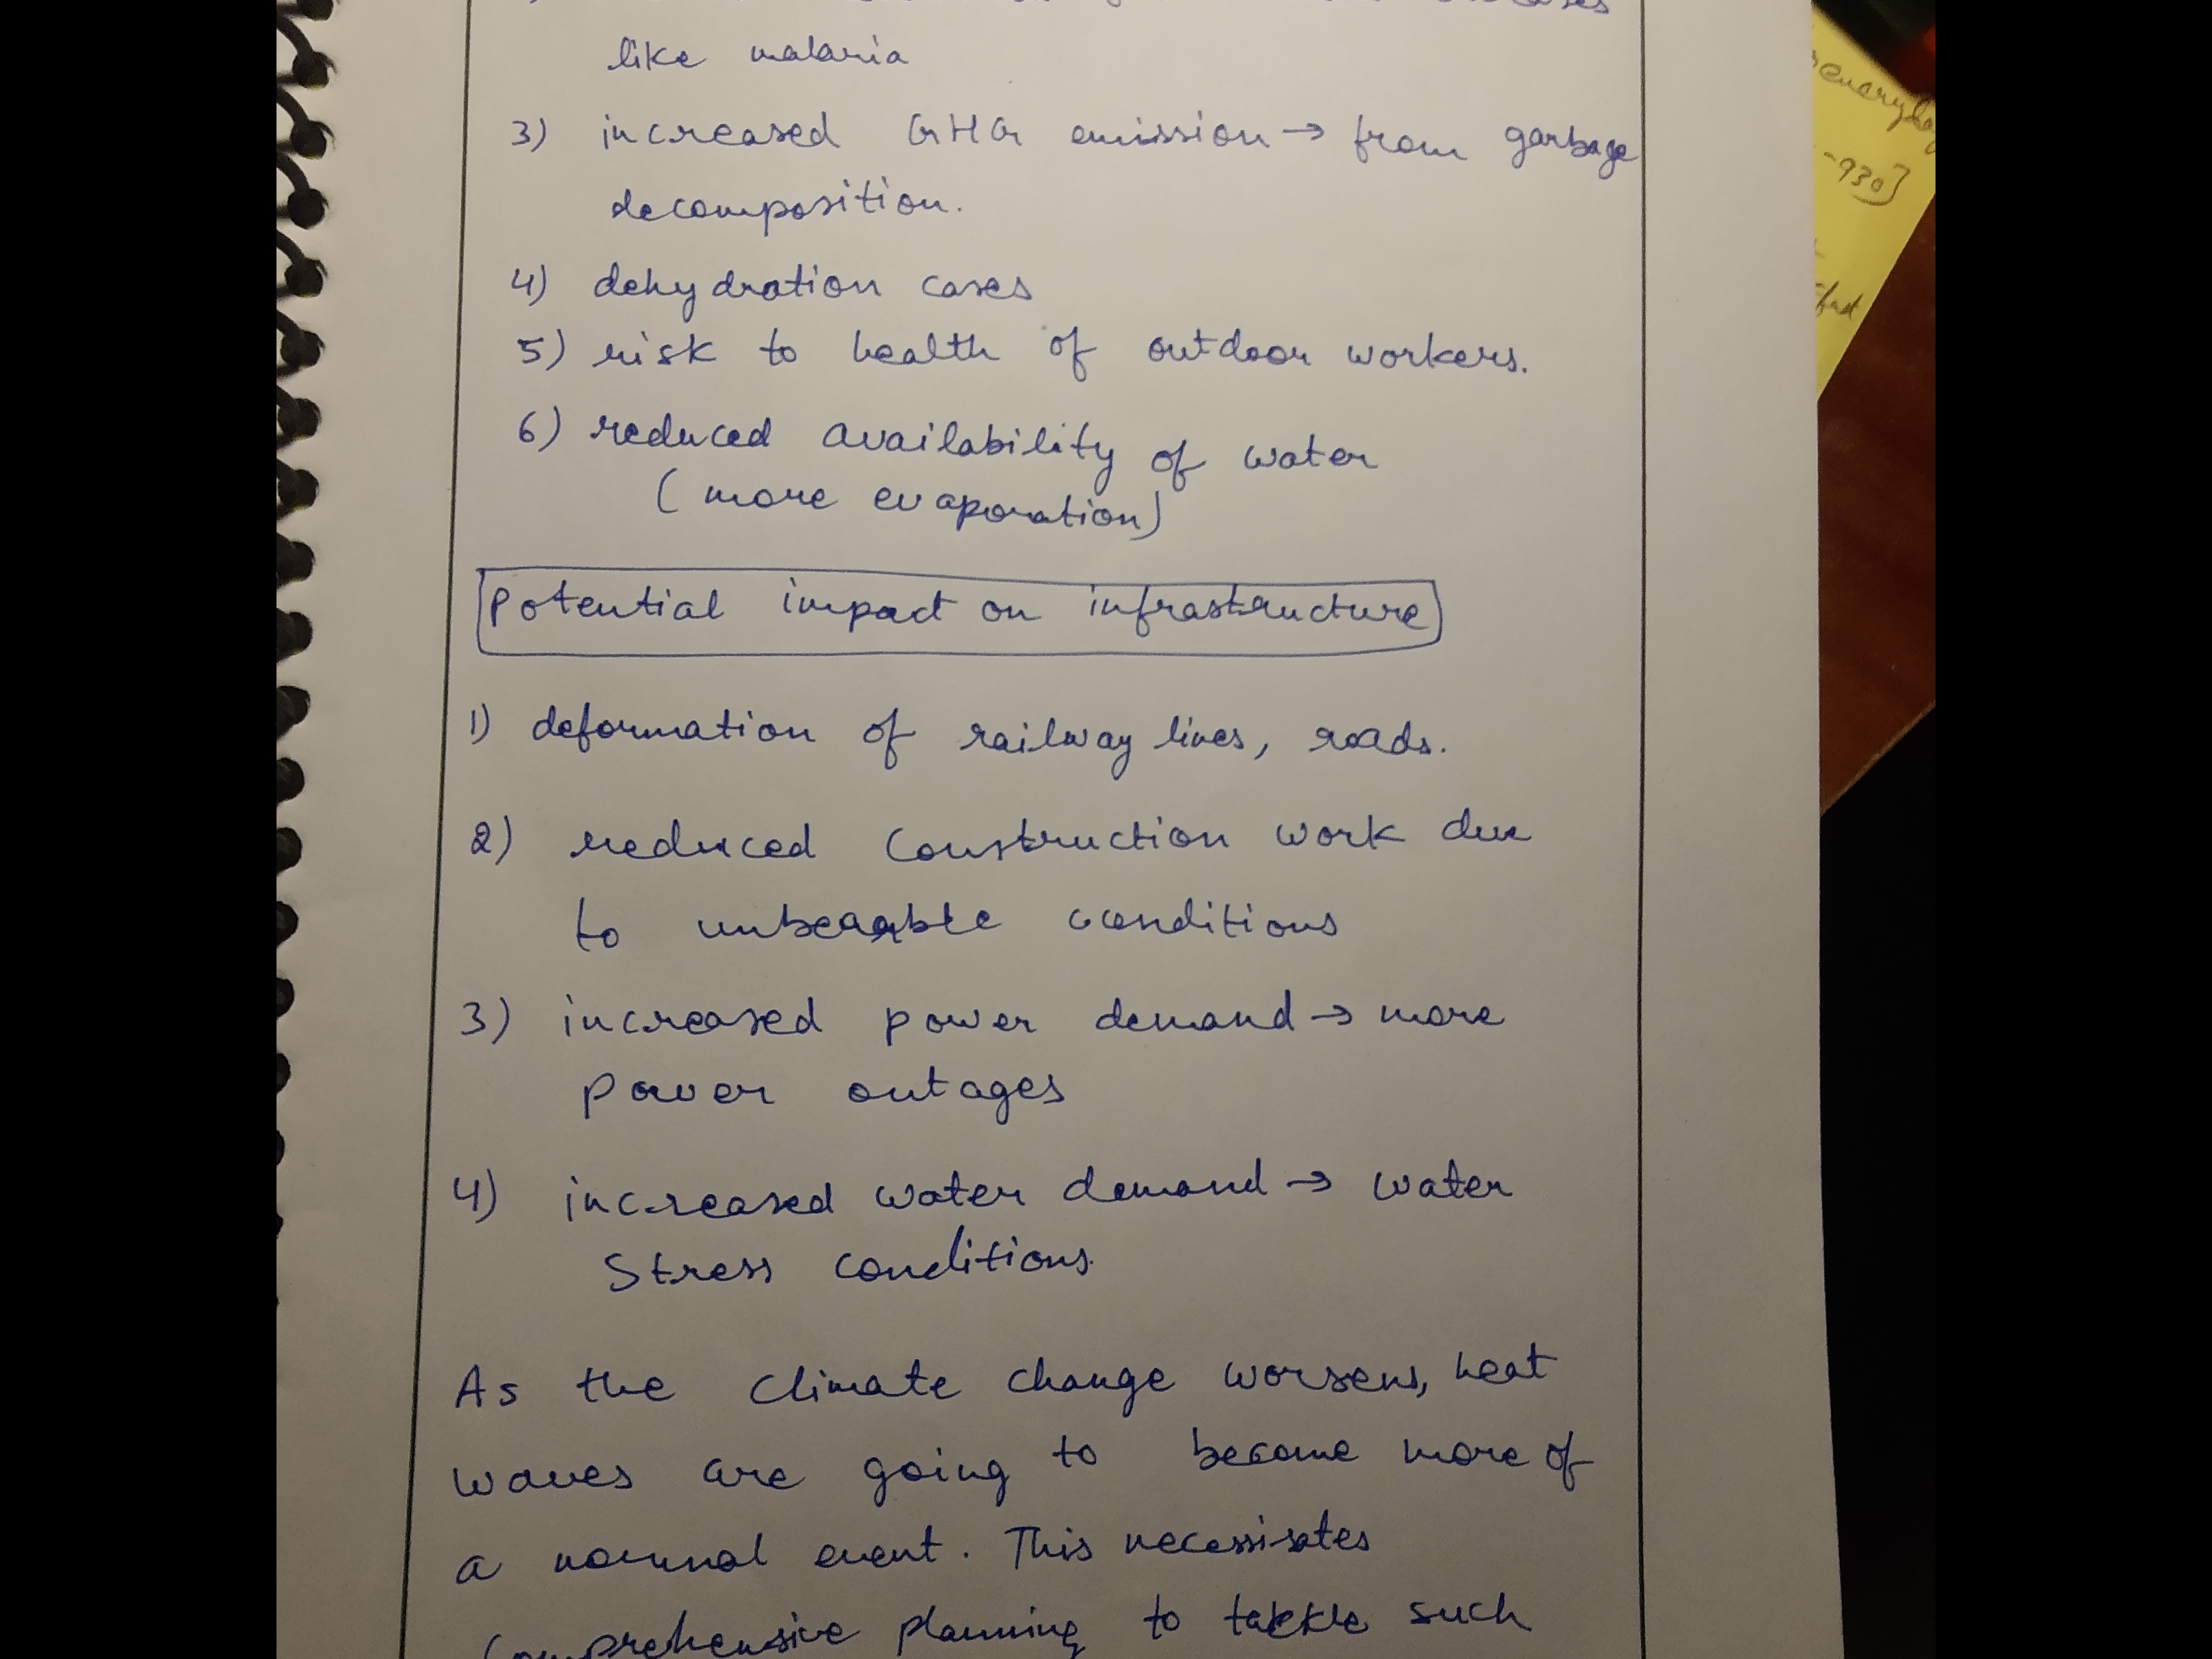 diseases
like malaria
3) increased GHG emission → from garbage
decomposition.
4) dehydration cases
5) risk to health of outdoor workers.
6) reduced availability of water
(more evaporation)
Potential impact on infrastructure
1) deformation of railway lines, roads.
2) reduced construction work due
to unbearable conditions
3) increased power demand → more
power outages
4) increased water demand → water
stress conditions.
As the climate change worsens, heat
waves are going to become more of
a normal event. This necessisates
comprehensive planning to tackle such
-930]